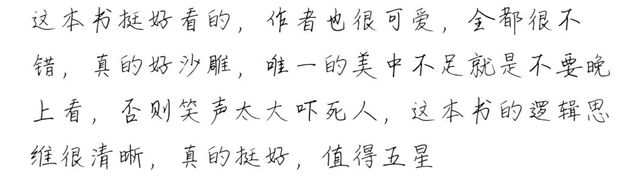 这本书挺好看的，作者也很可爱，全都很不
错，真的好沙雕，唯一的美中不足就是不要晚
上看，否则笑声太大吓死人，这本书的逻辑思
维很清晰，真的挺好，值得五星